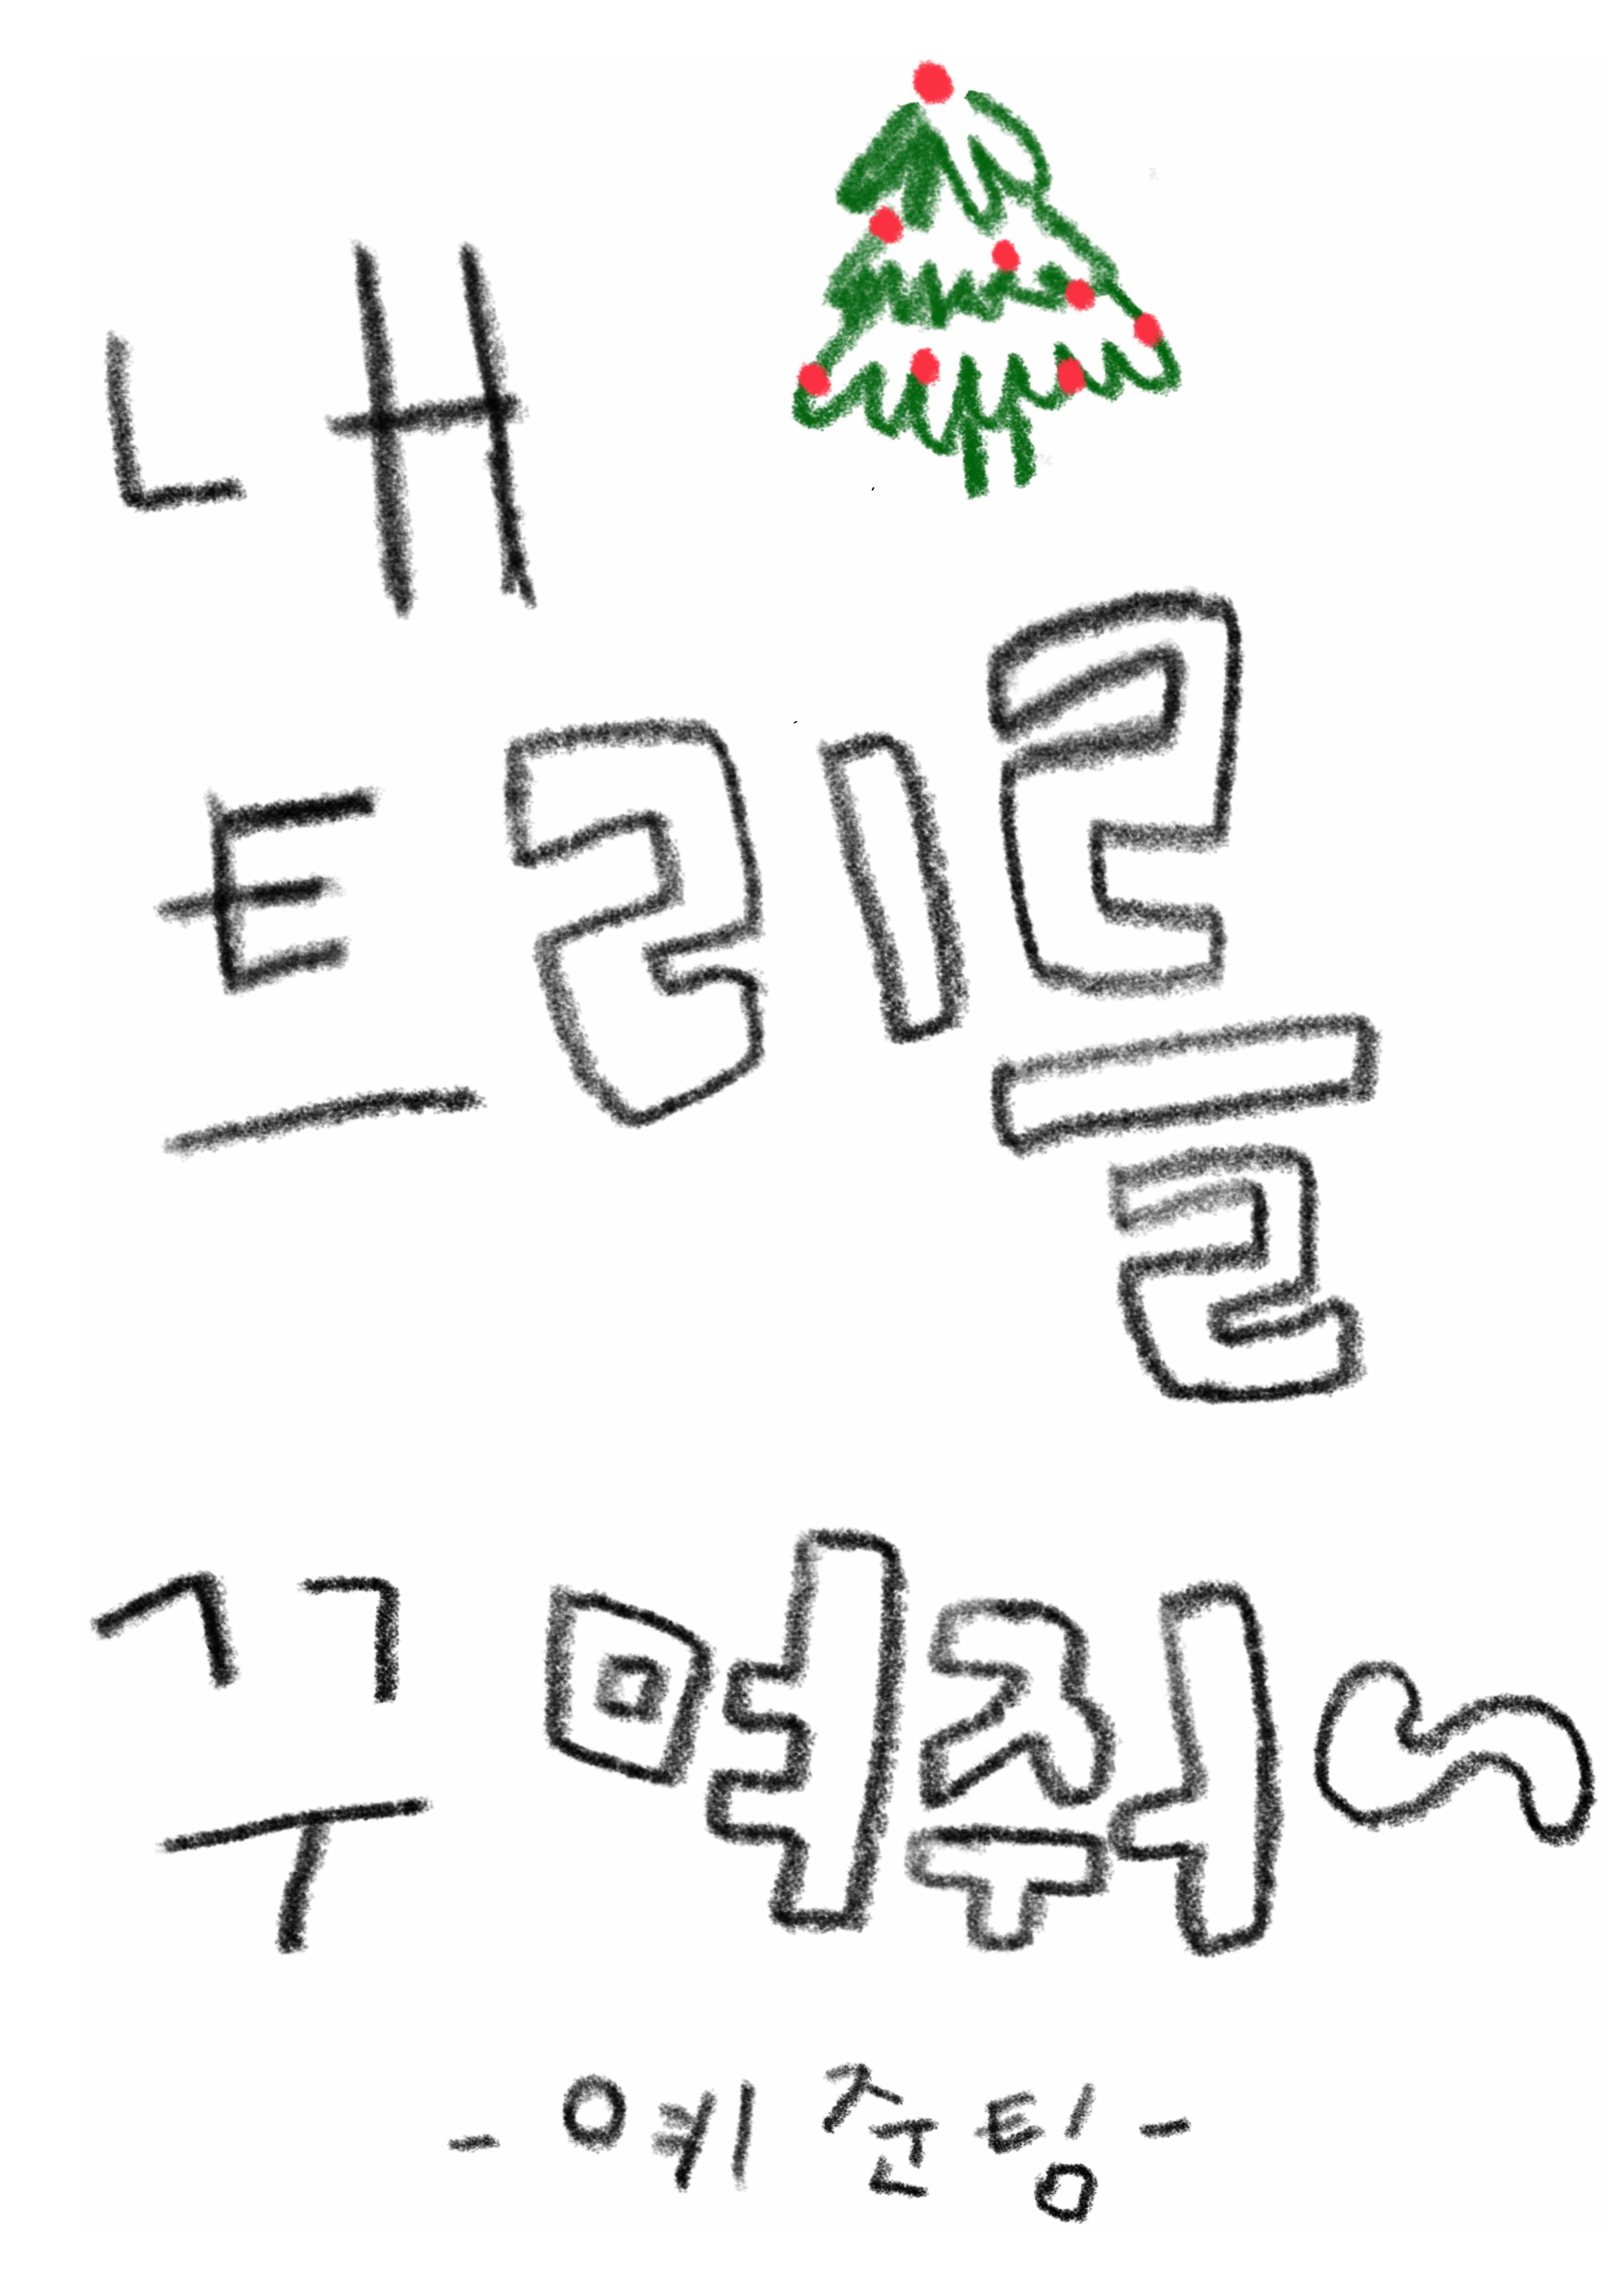 내
트리를
꾸며줘~
- 예준팅 -